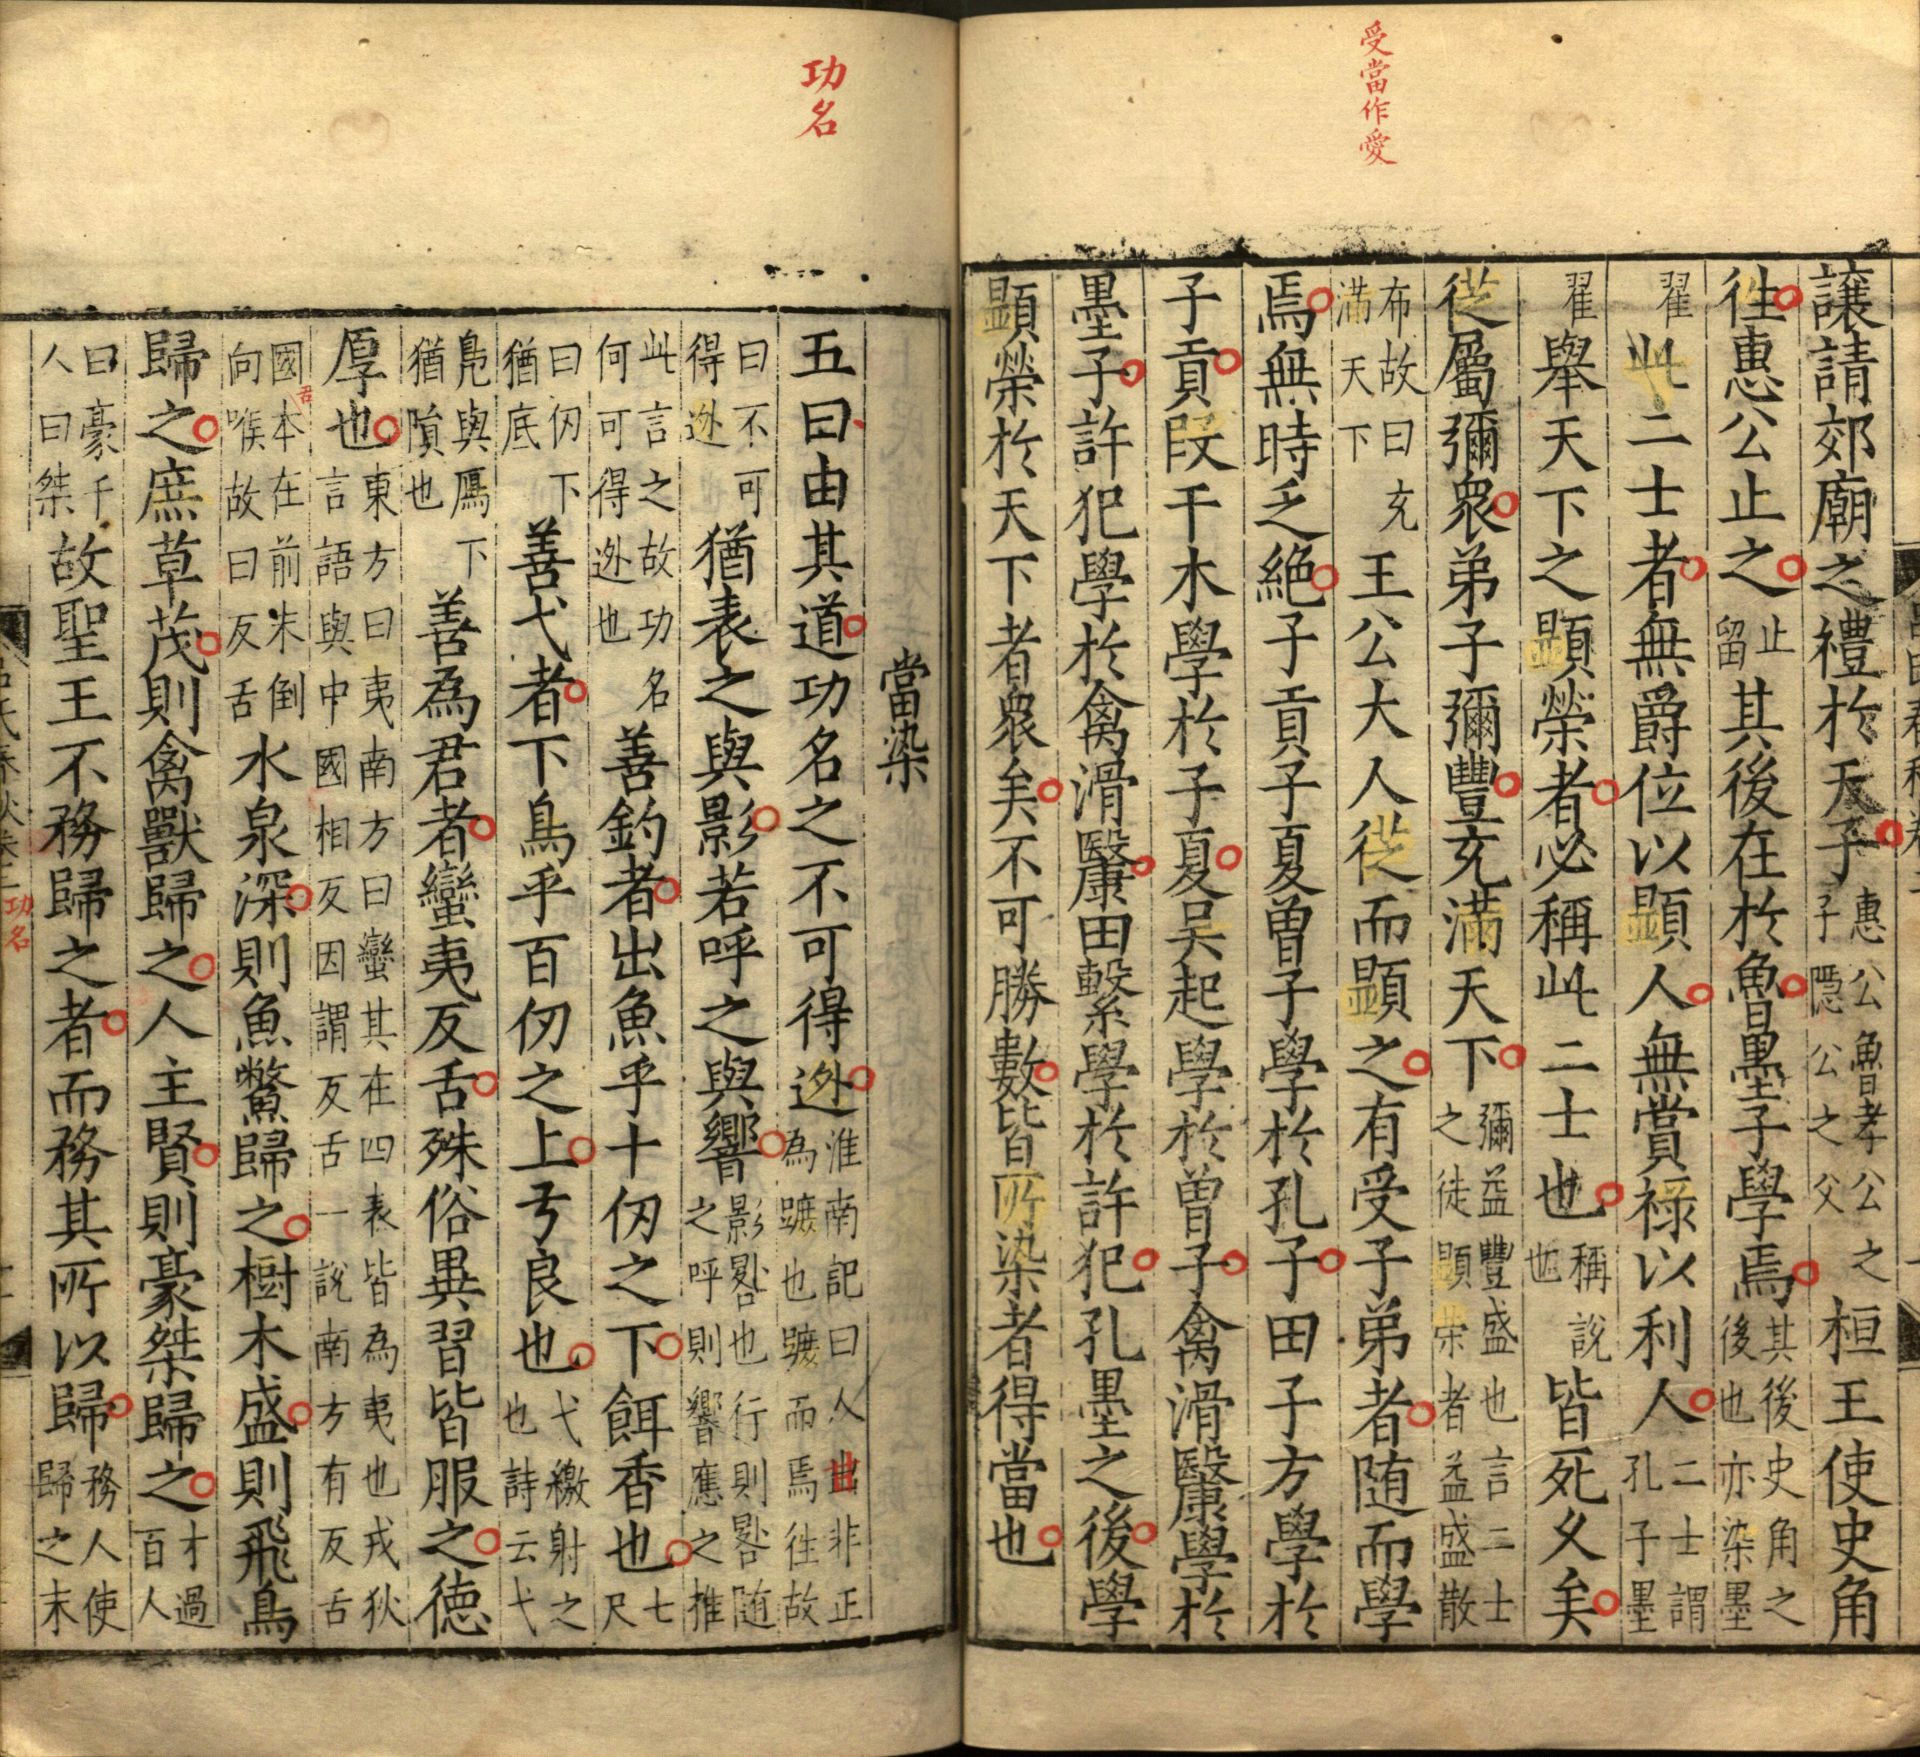 受當作愛
讓請郊廟之禮於天子惠公魯孝公之子隱公之父桓王使史角
徃惠公止之止留其後在於魯墨子學焉其後史角之後也亦染墨
翟此二士者無爵位以顯人無賞祿以利人二士謂孔子墨
翟舉天下之顯榮者必稱此二士也稱說也皆死乆矣
從屬彌衆弟子彌豐充滿天下彌益豐盛也言二士之徒顯榮者益盛散
布故曰充滿天下王公大人從而顯之有受子弟者随而學
焉無時乏絕子貢子夏曾子學於孔子田子方學於
子貢段干木學於子夏吴起學於曾子禽滑釐學於
墨子許犯學於禽滑釐田繫學於許犯孔墨之後學
顯榮於天下者衆矣不可勝數皆所染者得當也
功名
當染
五曰由其道功名之不可得逃淮南記曰人出非正為蹠也蹠而焉徃故
曰不可得逃猶表之與影若呼之與響影晷也行則晷随之呼則響應之推
此言之故功名何可得逃也善釣者出魚乎十仞之下餌香也七尺
曰仞下猶底善弋者下鳥乎百仞之上弓良也弋繳射之也詩云弋
鳧與鴈下猶隕也善為君者蠻夷反舌殊俗異習皆服之德
厚也東方曰夷南方曰蠻其在四表皆為夷也戎狄言語與中國相反因謂反舌一說南方有反舌
國本在前末倒向喉故曰反舌水泉深則魚鱉歸之樹木盛則飛鳥
歸之庶草茂則禽獸歸之人主賢則豪桀歸之才過百人
曰豪千人曰桀故聖王不務歸之者而務其所以歸務人使歸之末
吕氏春秋卷二 功名